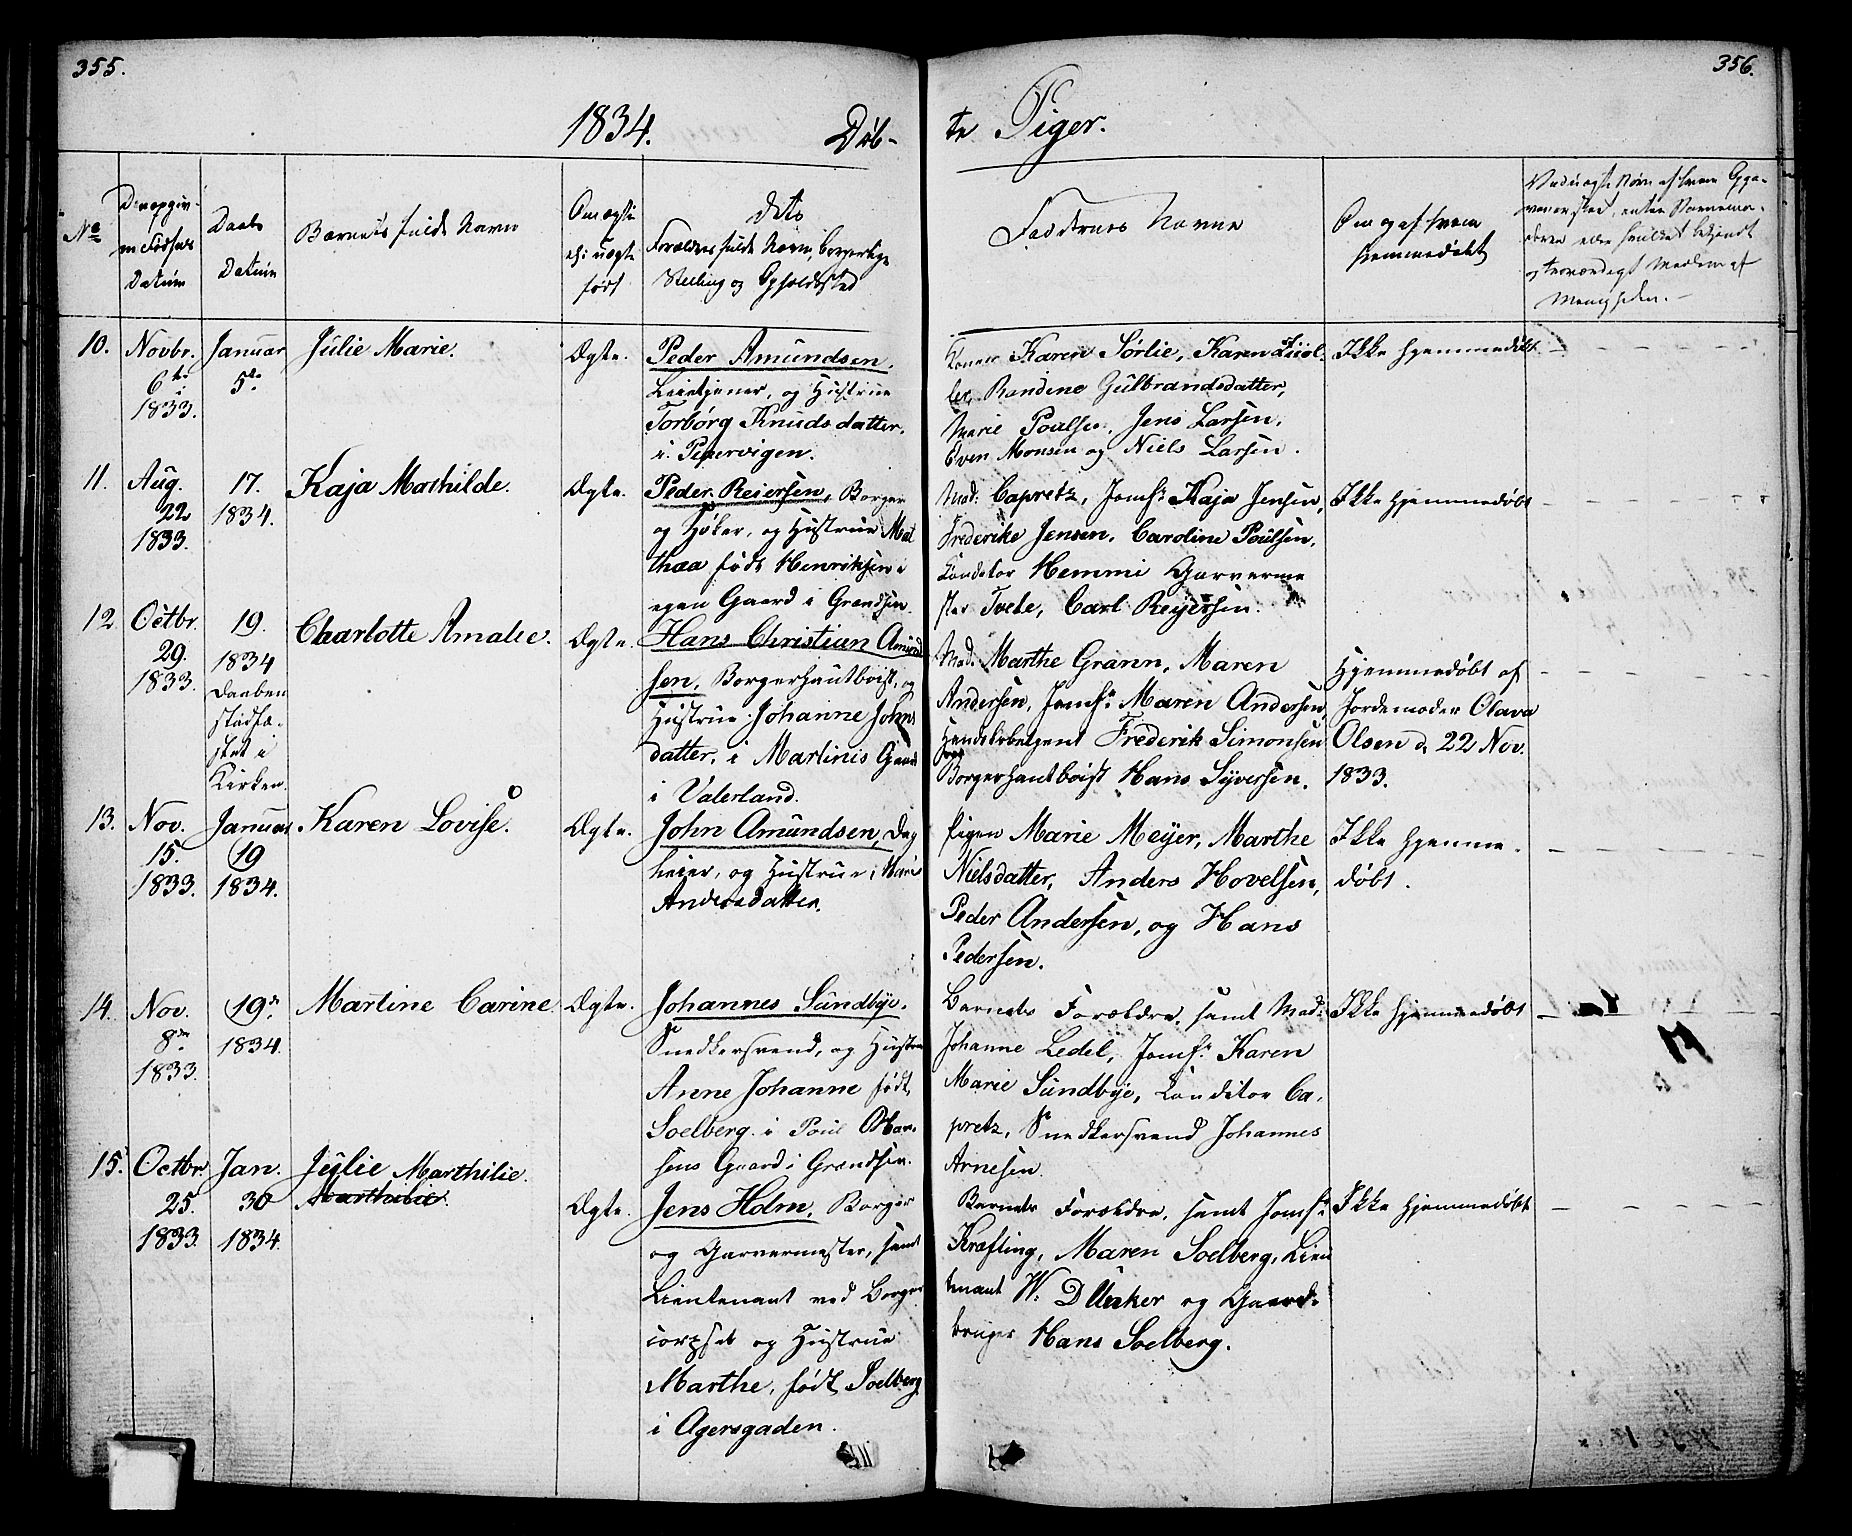 355.
356.
1834.
Døb-
te Piger.
No
Den opgiv-
ne Fødsels
Datum
Daabs
Datum
Barnets fulde Navn
Om ægte
el: uægte
født
dets
Forældres fulde Navn, borgerlige
Stilling og Opholdssted
Faddernes Navne
Om og af hvem
hjemmedøbt
10.
Novbr.
6te
1833.
Januar
5te
Julie Marie.
Ægte.
Peder Amundsen.
Leietjener, og Hustrue
Torborg Knudsdatter.
i Pipervigen.
Karen Sørlie, Karen
Randine Gulbrandsdatter,
Marie Poulsen, Jens Larsen,
Even Monsen og Niels Larsen.
Ikke hjemmedøbt
11.
Aug.
22
1833.
17.
1834.
Kaja Mathilde.
Ægte.
Peder Reiersen, Borger
og Høker, og Hustrue Mat
thea født Henriksen i
egen Gaard i Grændsen.
Mad: Capretz, Jomfr: Kaja Jensen,
Frederike Jensen, Caroline Poulsen,
Conditor Hemmi Garverme
ster Tvede, Carl Reyersen.
Ikke Hjemmedøbt
12.
Octbr.
29.
1833.
19.
1834
Daaben
stadfæ-
stet i
Kirken.
Charlotte Amalie.
Ægte.
Hans Christian Amund
sen, Borgerhautboist, og
Hustrue Johanne Johns
datter, i Martinis Gaard
i Vaterland.
Mad: Marthe Grann, Maren
Andersen, Jomfr: Maren Andersen,
Handelsbetjent Frederik Simonsen
Borgerhautboist Hans Syversen.
Hjemmedøbt af
Jordemoder Olava
Olsen d. 22 Nov.
1833.
13.
Nov.
15.
1833.
Januar
19
1834.
Karen Lovise.
Ægte.
John Amundsen, Dag
leier, og Hustrue Marie
Andersdatter.
Pigen Marie Meyer, Marthe
Nielsdatter, Anders Hovelsen,
Peder Andersen, og Hans
Pedersen.
Ikke hjemme-
døbt.
14.
Nov.
8de
1833.
19de
1834.
Martine Carine
Ægte.
Johannes Sundbye.
Snedkersvend, og Hustrue
Anne Johanne født
Soelberg i Poul Han-
sens Gaard i Grændsen.
Barnets Forældre, samt Mad:
Johanne Ledel, Jomfr: Karen
Marie Sundbye, Conditor Ca-
pretz, Snedkersvend Johannes
Arnesen.
Ikke hjemmedøbt
15.
Octbr
25.
1833.
Jan.
30
1834.
Julie Marthilie.
Marthilie.
Ægte.
Jens Holm, Borger
og Garvermester, samt
Lieutenant ved Borger
corpset og Hustrue
Marthe, født Soelberg
i Agersgaden.
Barnets Forældre, samt Jomfr
Kræfting, Maren Soelberg, Lieu
tenant W: og Gaard-
bruger Hans Soelberg.
Ikke hjemmedøbt